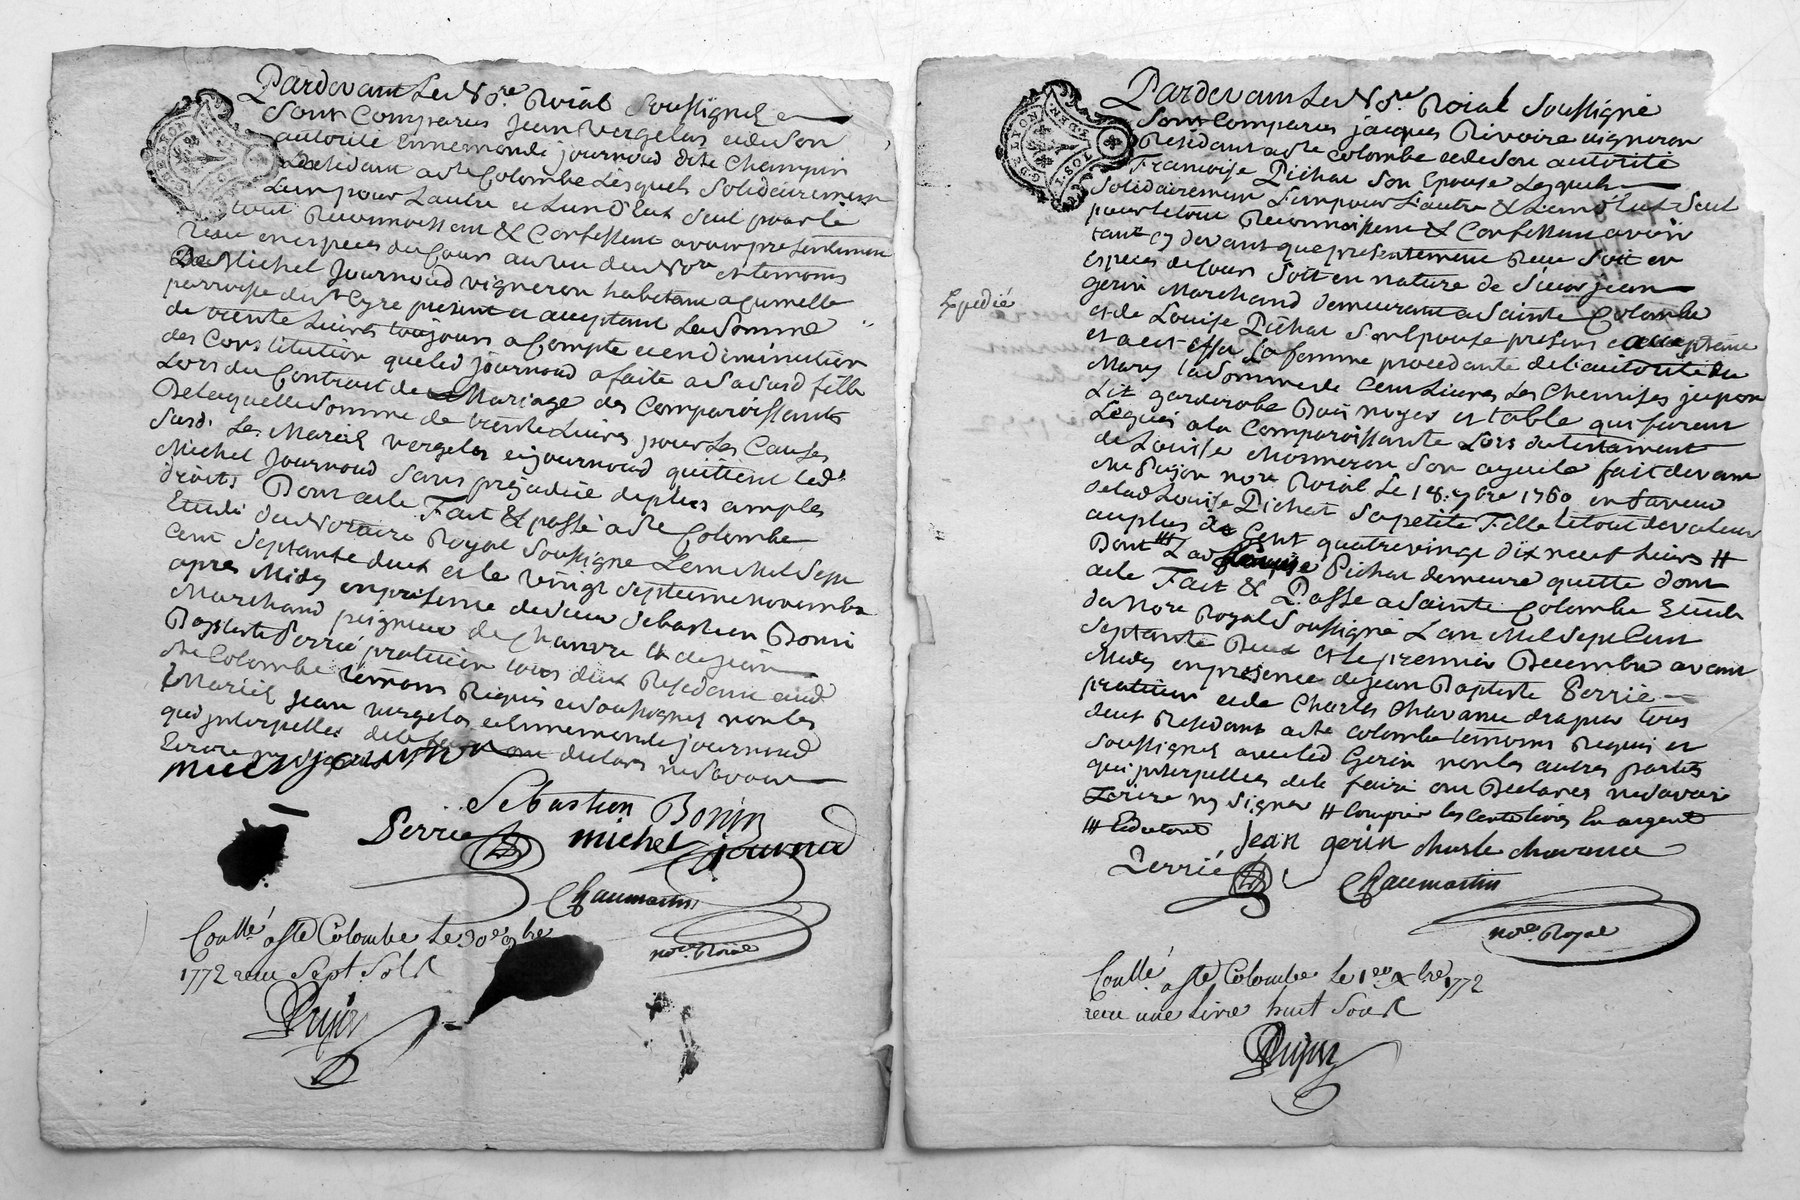 Pardevant Le No.re Roial Soussigné
Sont Comparus Jean Vergelas et de Son
autorité Ennemonde journoud dite Champin
Residant a Ste Colombe Lesquels Solidairement
L'un pour L'autre et L'un d'Eux Seul pour le
tout Reconnoissent & Confessent avoir presentement
Receu en especes du Cours au veu du No.re et temoins
De Michel Journoud vigneron habitant a
parroisse de St Cyre present et acceptant La Somme
de trente Livres toujours a Compte et en diminution
des Constitution que led Journoud a faite a Sad fille
Lors du Contrait de Mariage des Comparoissants
De laquelle Somme de trente Livres pour Les Causes
Susd. Les Mariés vergelas et journoud quittent led
Michel Journoud Sans prejudice de plus amples
droits Dont acte Fait & passé a Ste Colombe
Etude du Notaire Royal Soussigné L'an Mil Sept
Cent Septante deux et le vingt Septieme novembre
apres Midy en presence de Sieur Sebastien Bonin
Marchand peigneur de Chanvre & de Jean
Baptiste Perrié praticien tous deux Residant aud
Ste Colombe temoins Requis et Soussignés non les
Mariés Jean vergelas et Ennemonde journoud
qui interpellés de le faire ont declaré ne Savoir
Ecrire ny Signer
Sebastien Bonin
Perrié michel journod
Chaumartin
no.re Roial
Conllé a Ste Colombe Le 30e 9bre
1772 receu Sept Sols
Pujon
Pardevant Le No.re Roial Soussigné
Sont Comparus jacques Rivoire vigneron
Residant a Ste Colombe et de Son autorité
Francoise Pichat Son Epouse Lesquels
Solidairement L'un pour L'autre & L'un d'Eux Seul
pour le tout Reconnoissent & Confessent avoir
tant cy devant que presentement Receu Soit en
Especes de Cours Soit en nature de Sieur jean
gerin Marchand demeurant a Sainte Colombe
Expedié
et de Louise Pichat Son Epouse presens et acceptans
et a cet effet La femme procedante de l'autorité du
Mary La Somme de Cent Livres Les Chemises jupon
Lit garderobe Bois noyer et table qui furent
Legués a la Comparoissante Lors du testament
de Louise Monneron Son ayeule fait devant
Me Pujon no.re Roial Le 18. 7bre 1760 en faveur
de lad Louise Pichat Sa petite Fille le tout de valeur
au plus de Cent quatrevingt dix neuf Livres #
Dont ### Lad Pichat demeure quitte dont
acte Fait & Passé a Sainte Colombe Etude
du No.re Royal Soussigné L'an Mil Sept Cent
Septante Deux et Le premier Decembre avant
Midy en presence de Jean Baptiste Perrié
praticien et de Charles Chavanne drapier tous
deux Residant a Ste Colombe temoins Requis et
Soussignés avec led Gerin non les autres parties
qui interpellées de le faire ont Declarés ne Savoir
Ecrire ny Signer # Compris les cent livres En argent
jean gerin charle chavanne
Perrié Chaumartin
no.re Royal
Conllé a Ste Colombe Le 1er Xbre 1772
receu une Livre huit Sols
Pujon